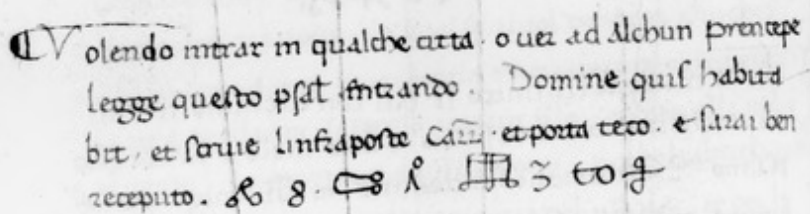 Volendo intrar in qualche citta. o uer ad Alchun prencepe
legge questo psal̄. intrando. Domine quis habita
bit. et scriue linfraposte Carr̄. et porta teco. e sarai ben
receputo.